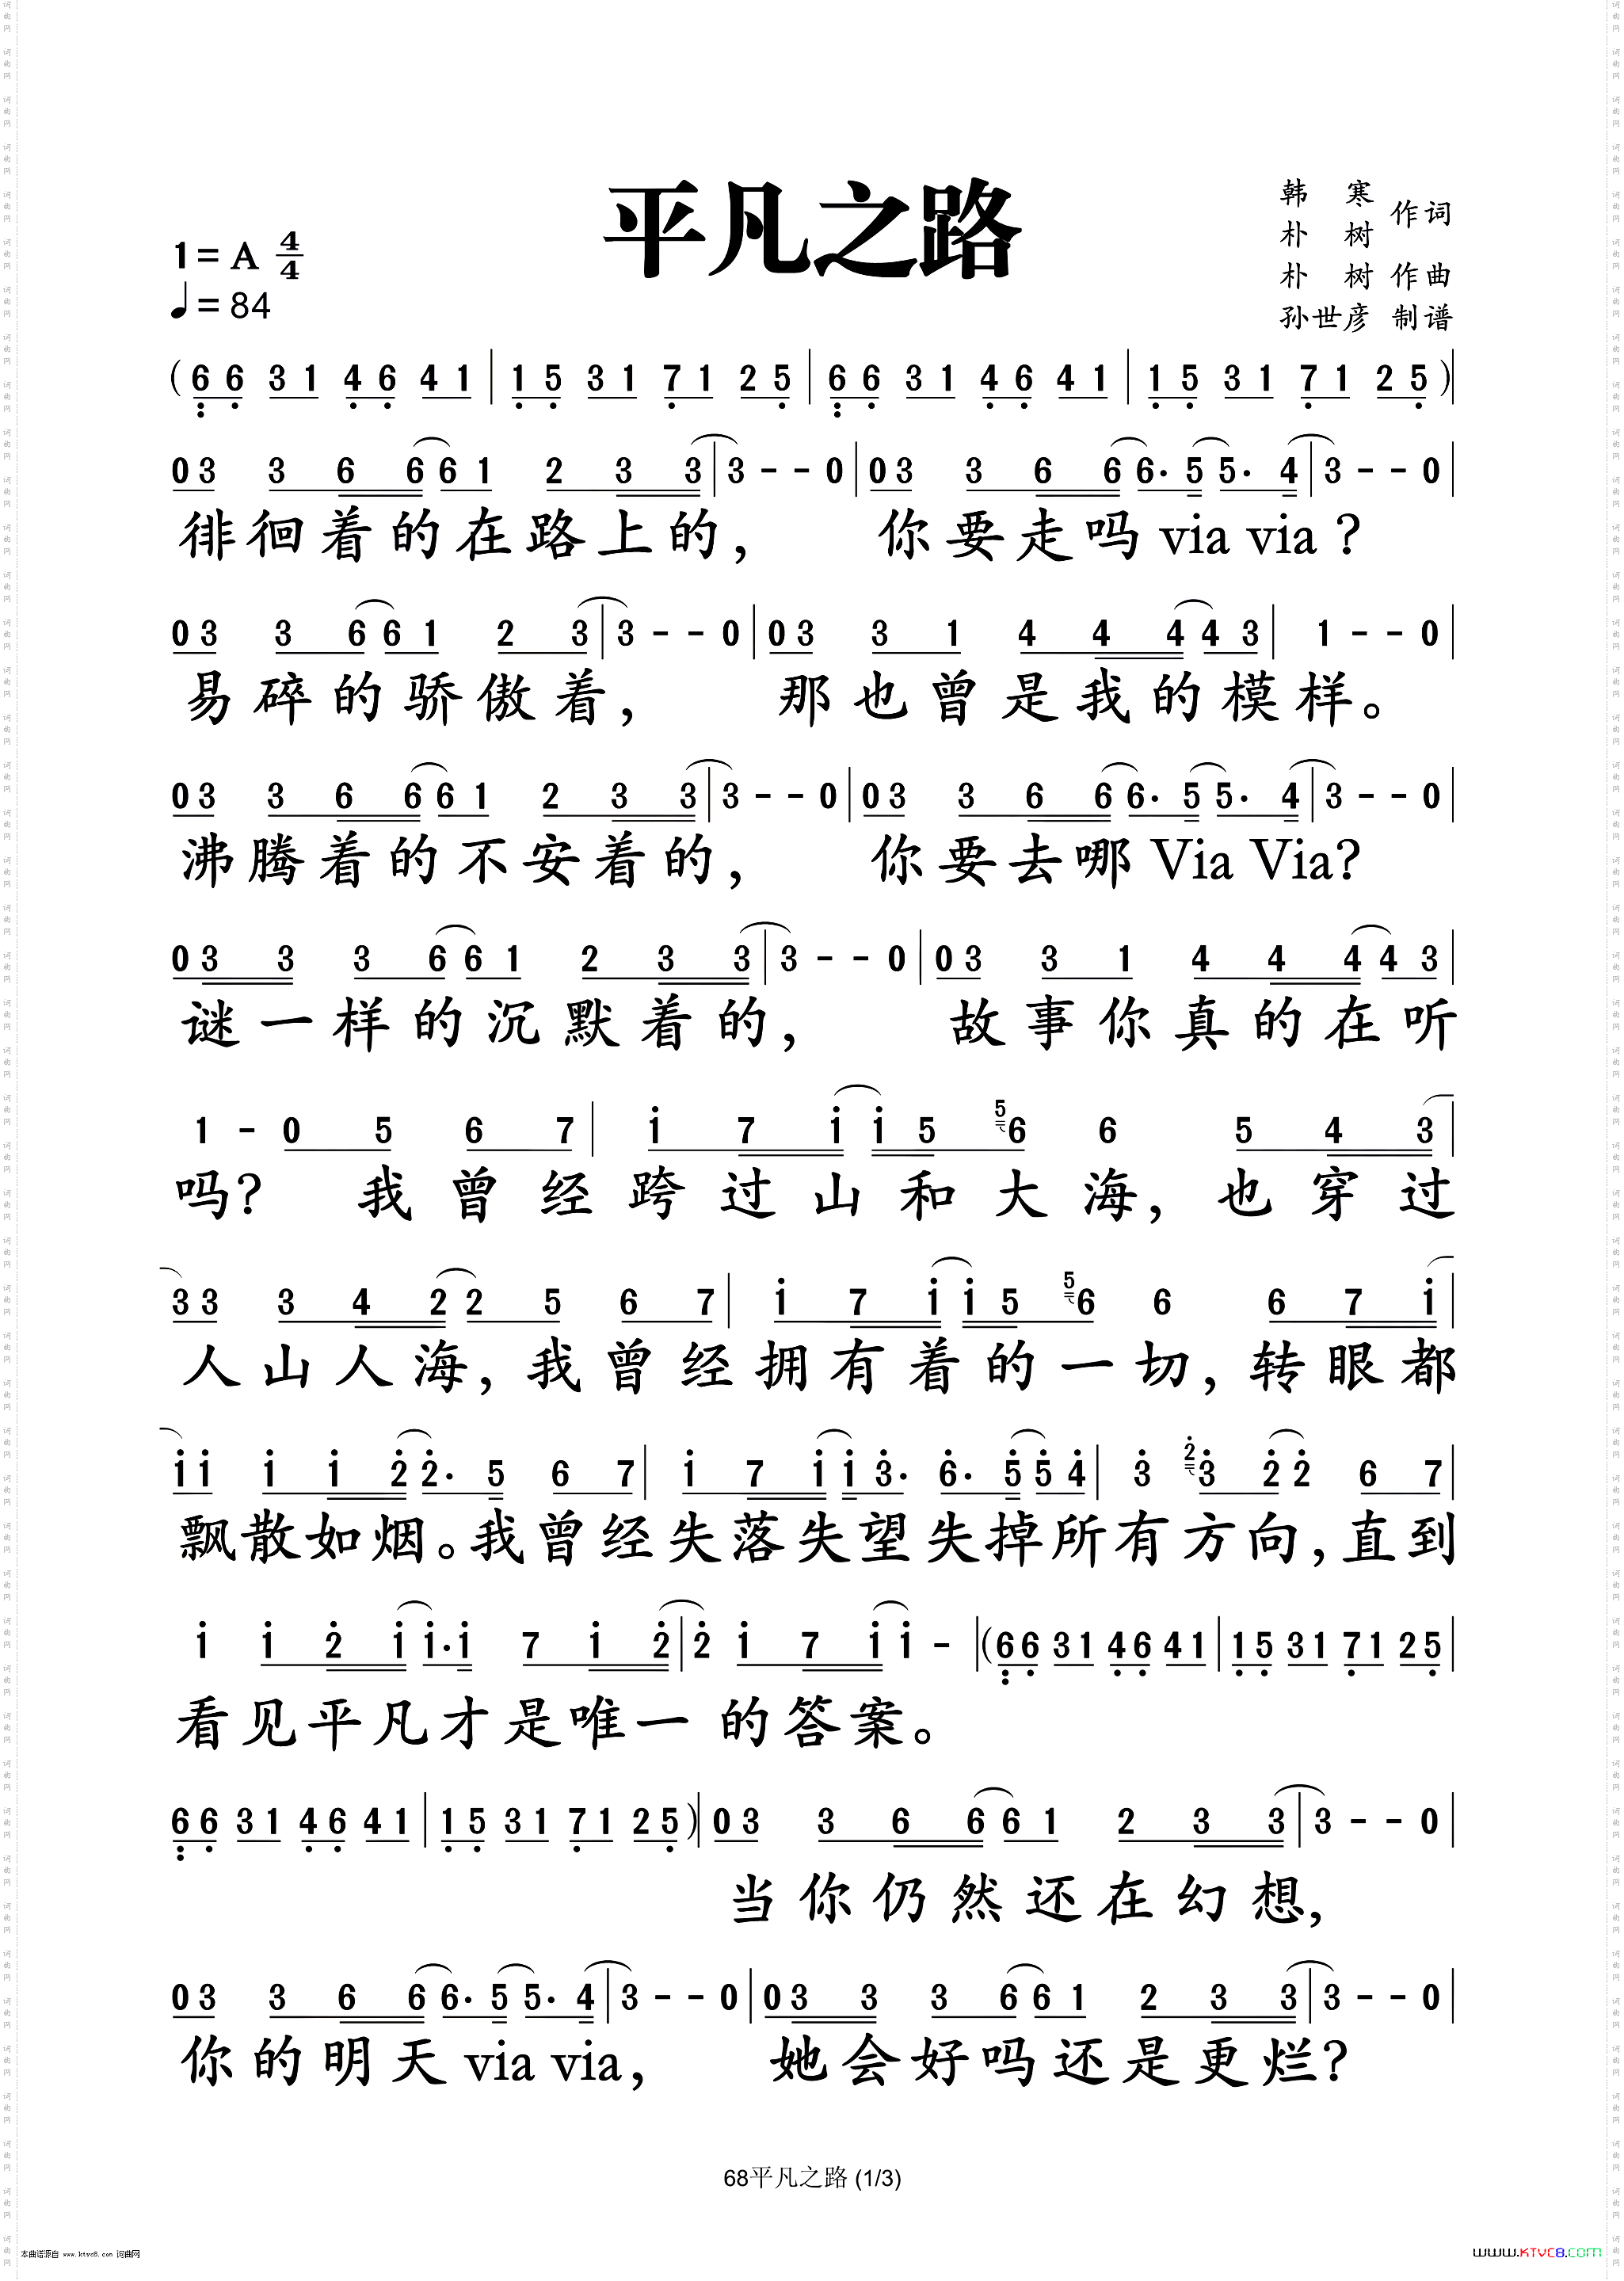 平凡之路
1=A 4/4
♩=84
韩 寒 作词
朴 树
朴 树 作曲
孙世彦 制谱
(6 6 3 1 4 6 4 1 | 1 5 3 1 7 1 2 5 | 6 6 3 1 4 6 4 1 | 1 5 3 1 7 1 2 5)|
0 3 3 6 6 6 1 2 3 3 | 3 - - 0 | 0 3 3 6 6 6· 5 5· 4 | 3 - - 0 |
徘徊着的在路上的, 你要走吗 via via ?
0 3 3 6 6 1 2 3 | 3 - - 0 | 0 3 3 1 4 4 4 4 3 | 1 - - 0 |
易碎的骄傲着, 那也曾是我的模样。
0 3 3 6 6 6 1 2 3 3 | 3 - - 0 | 0 3 3 6 6 6· 5 5· 4 | 3 - - 0 |
沸腾着的不安着的, 你要去哪 Via Via?
0 3 3 3 6 6 1 2 3 3 | 3 - - 0 | 0 3 3 1 4 4 4 4 3 |
谜一样的沉默着的, 故事你真的在听
1 - 0 5 6 7 | i 7 i i 5 5 6 6 5 4 3 |
吗? 我曾经跨过山和大海, 也穿过
3 3 3 4 2 2 5 6 7 | i 7 i i 5 5 6 6 6 7 i |
人山人海, 我曾经拥有着的一切, 转眼都
i i i i 2 2· 5 6 7 | i 7 i i 3· 6· 5 5 4 | 3 2 3 2 2 6 7 |
飘散如烟。我曾经失落失望失掉所有方向, 直到
i i 2 i i· i 7 i 2 | 2 i 7 i i - | (6 6 3 1 4 6 4 1 | 1 5 3 1 7 1 2 5 |
看见平凡才是唯一的答案。
6 6 3 1 4 6 4 1 | 1 5 3 1 7 1 2 5)| 0 3 3 6 6 6 1 2 3 3 | 3 - - 0 |
当你仍然还在幻想,
0 3 3 6 6 6· 5 5· 4 | 3 - - 0 | 0 3 3 3 6 6 1 2 3 3 | 3 - - 0 |
你的明天 via via, 她会好吗还是更烂?
68平凡之路 (1/3)
本曲谱源自 www.ktvc8.com 词曲网
www.KTVC8.com